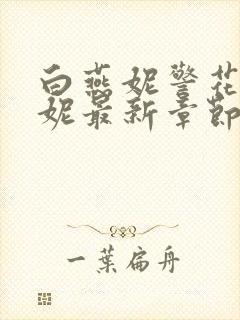 白燕妮警花
妮最新章节
一葉扁舟